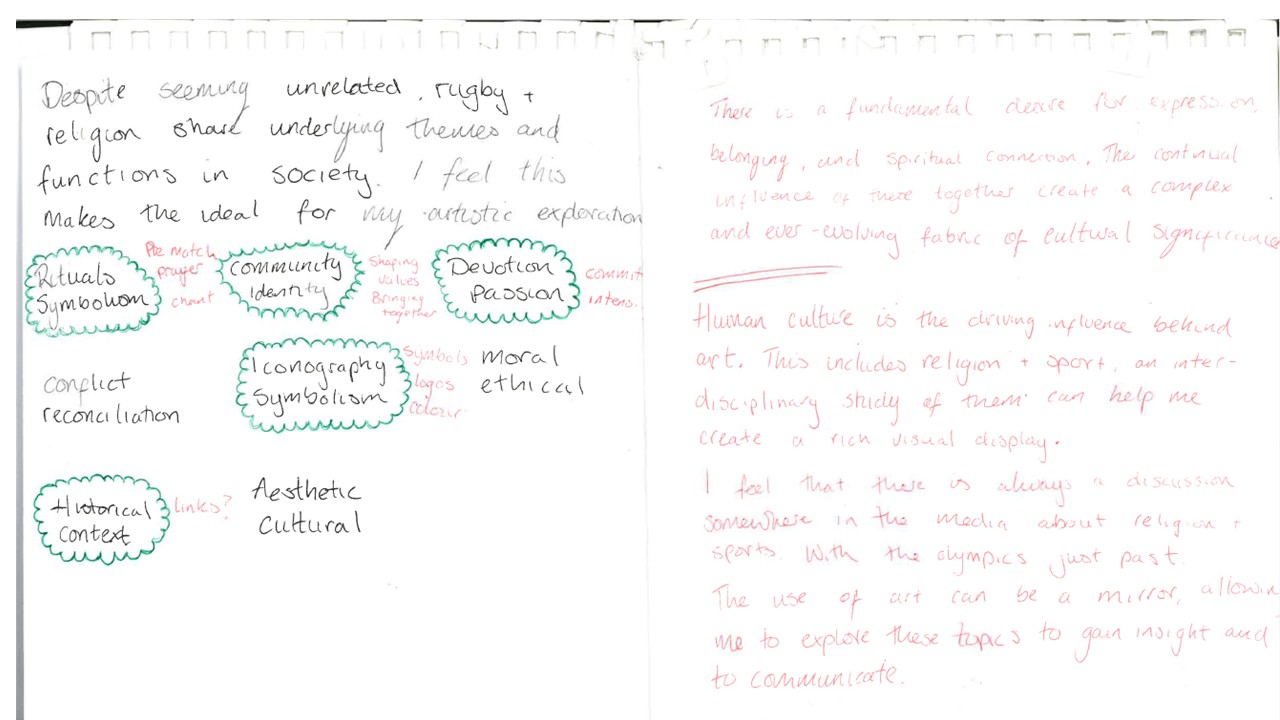 Despite seeming unrelated, rugby +
religion share underlying themes and
functions in society. I feel this
makes the ideal for my artistic exploration
Rituals
Symbolism
Pre match
prayer
chant
Community
Identity
Shaping
values
Bringing
together
Devotion
Passion
commit
intens.
conflict
reconciliation
Iconography
Symbolism
Symbols
logos
colour
moral
ethical
Historical
context
links?
Aesthetic
Cultural
There is a fundamental desire for expression,
belonging, and spiritual connection. The continual
influence of these together create a complex
and ever-evolving fabric of cultural significance
Human culture is the driving influence behind
art. This includes religion + sport, an inter-
disciplinary study of them can help me
create a rich visual display.
I feel that there is always a discussion
somewhere in the media about religion +
sports. With the olympics just past.
The use of art can be a mirror, allowin
me to explore these topics to gain insight and
to communicate.